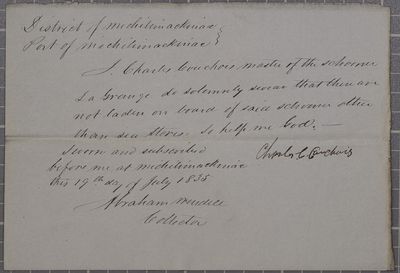 District of Michilimackinac
Port of Michilimackinac
I. Charles Couchois master of the schooner
La Grange do solemnly swear that there are
not laden on board of said schooner other
than sea stores. So help me God.—
Sworn and subscribed
before me at Michilimackinac
this 19th day of July 1835
Charles C. Couchois
Abraham Wendell
Collector